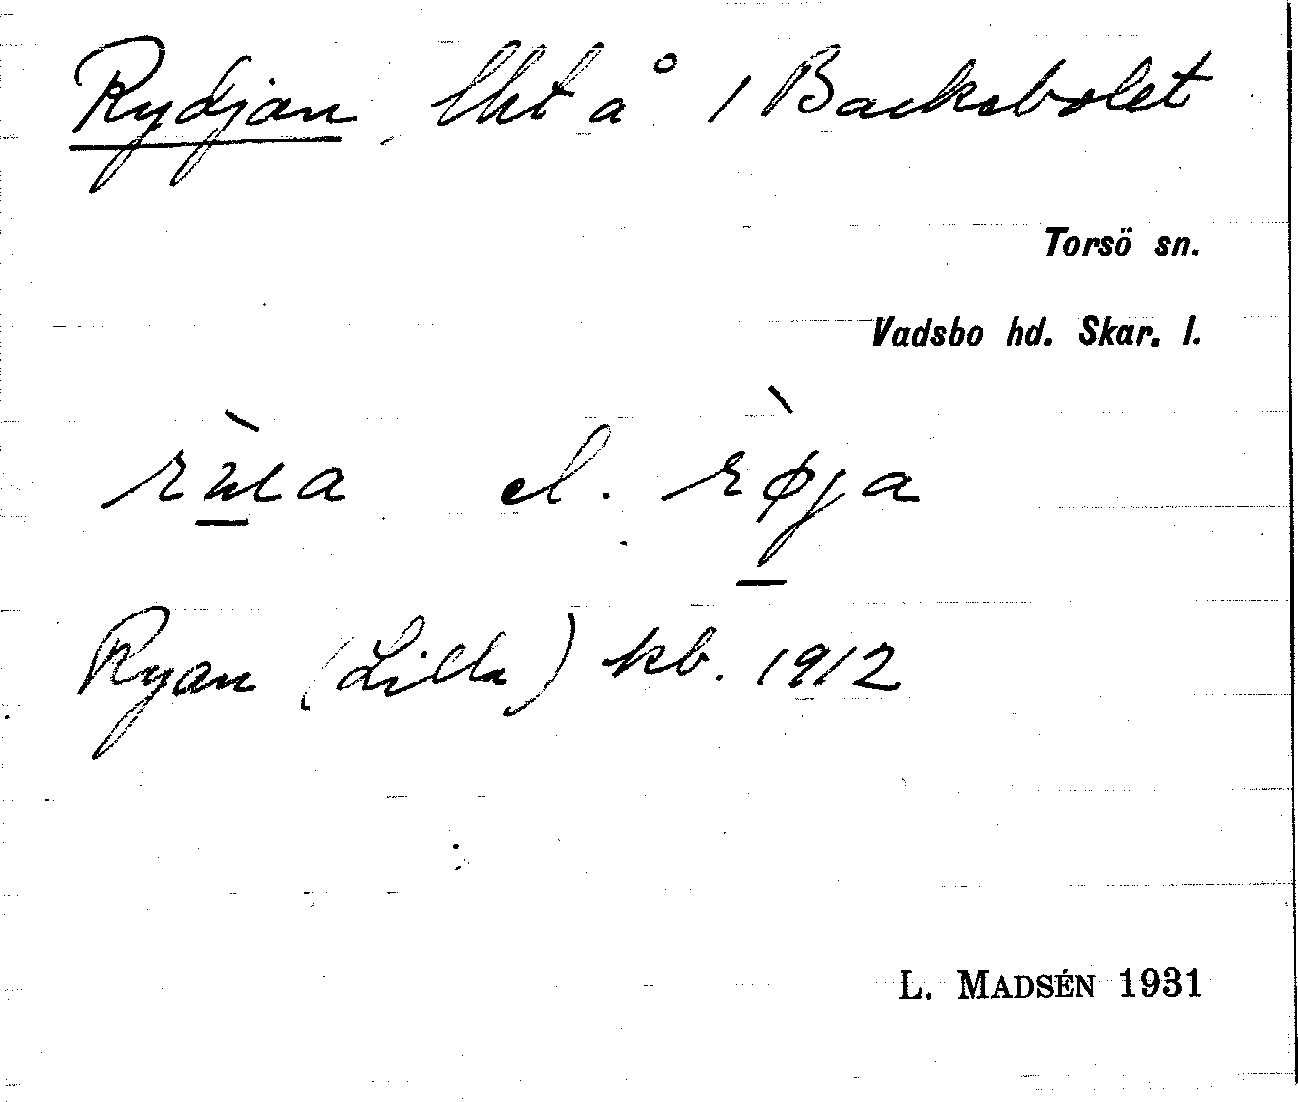 Rydjan, lht å 1 Backebolet
Torsö sn.
Vadsbo hd. Skar. l.
el. rø̀ja
Ryan (Lilla) kb. 1912
L. MADSÉN 1931